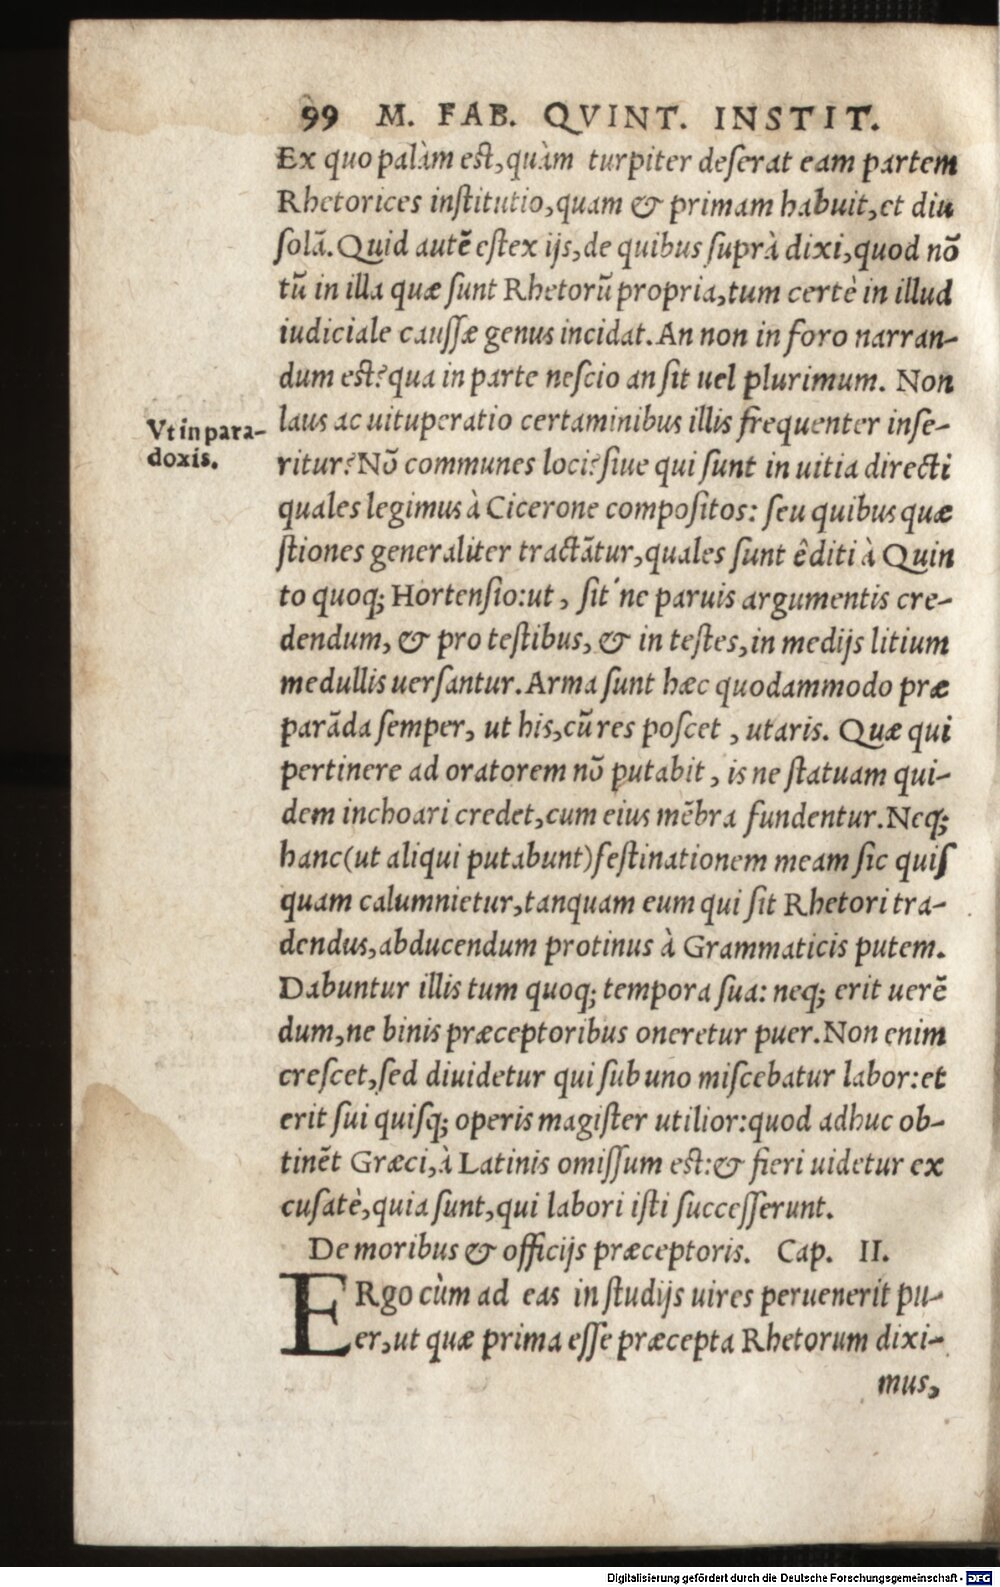 99 M. FAB. QVINT. INSTIT.
Ex quo palàm est, quàm turpiter deſerat eam partem
Rhetorices inſtitutio, quam & primam habuit, et diu
ſolã. Quid autẽ eſt ex ijs, de quibus ſuprà dixi, quod nõ
tũ in illa quæ ſunt Rhetorũ propria, tum certè in illud
iudiciale cauſſæ genus incidat. An non in foro narran-
dum est? qua in parte neſcio an ſit uel plurimum. Non
laus ac uituperatio certaminibus illis frequenter inſe-
Vt in para-
doxis.
ritur? Nõ communes loci? ſiue qui ſunt in uitia directi
quales legimus à Cicerone compoſitos: ſeu quibus quæ
ſtiones generaliter tractãtur, quales ſunt êditi à Quin
to quoq; Hortenſio: ut, ſit´ne paruis argumentis cre-
dendum, & pro teſtibus, & in teſtes, in medijs litium
medullis uerſantur. Arma ſunt hæc quodammodo præ
parãda ſemper, ut his, cũ res poſcet, utaris. Quæ qui
pertinere ad oratorem nõ putabit, is ne ſtatuam qui-
dem inchoari credet, cum eius mẽbra fundentur. Neq;
hanc (ut aliqui putabunt) feſtinationem meam ſic quiſ
quam calumnietur, tanquam eum qui ſit Rhetori tra-
dendus, abducendum protinus à Grammaticis putem.
Dabuntur illis tum quoq; tempora ſua: neq; erit uerẽ
dum, ne binis præceptoribus oneretur puer. Non enim
creſcet, ſed diuidetur qui ſub uno miſcebatur labor: et
erit ſui quiſq; operis magiſter utilior: quod adhuc ob-
tinẽt Græci, à Latinis omiſſum est: & fieri uidetur ex
cuſatè, quia ſunt, qui labori iſti ſucceſſerunt.
De moribus & officijs præceptoris. Cap. II.
ERgo cùm ad eas in ſtudijs uires peruenerit pu-
er, ut quæ prima eſſe præcepta Rhetorum dixi-
mus,
Digitalisierung gefördert durch die Deutsche Forschungsgemeinschaft - DFG